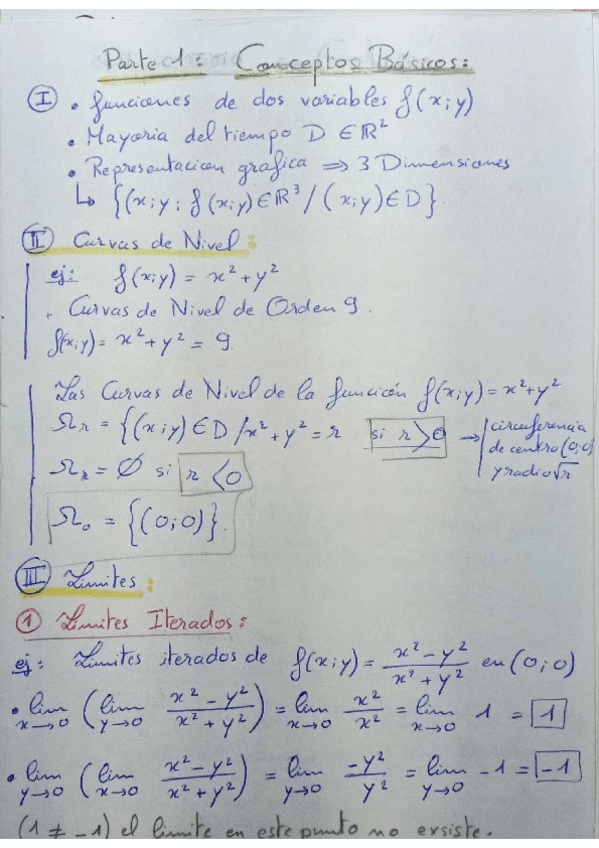 Parte 1: Conceptos Básicos:
I • funciones de dos variables f(x;y)
• Mayoria del tiempo D ∈ ℝ²
• Representacion grafica ⇒ 3 Dimensiones
↳ {(x;y; f(x;y) ∈ ℝ³ / (x;y) ∈ D}
II Curvas de Nivel:
ej: f(x;y) = x² + y²
• Curvas de Nivel de Orden 9.
f(x;y) = x² + y² = 9
Las Curvas de Nivel de la funcion f(x;y) = x² + y²
Ωr = {(x;y) ∈ D / x² + y² = r si r > 0 → circunferencia
de centro (0;0)
y radio √r
Ωr = ∅ si r < 0
Ω₀ = {(0;0)}.
III Limites:
1 Limites Iterados:
ej: Limites iterados de f(x;y) = (x² - y²)/(x² + y²) en (0;0)
• lim x→0 (lim y→0 (x² - y²)/(x² + y²)) = lim x→0 x²/x² = lim x→0 1 = 1
• lim y→0 (lim x→0 (x² - y²)/(x² + y²)) = lim y→0 -y²/y² = lim y→0 -1 = -1
(1 ≠ -1) el limite en este punto no exsiste.